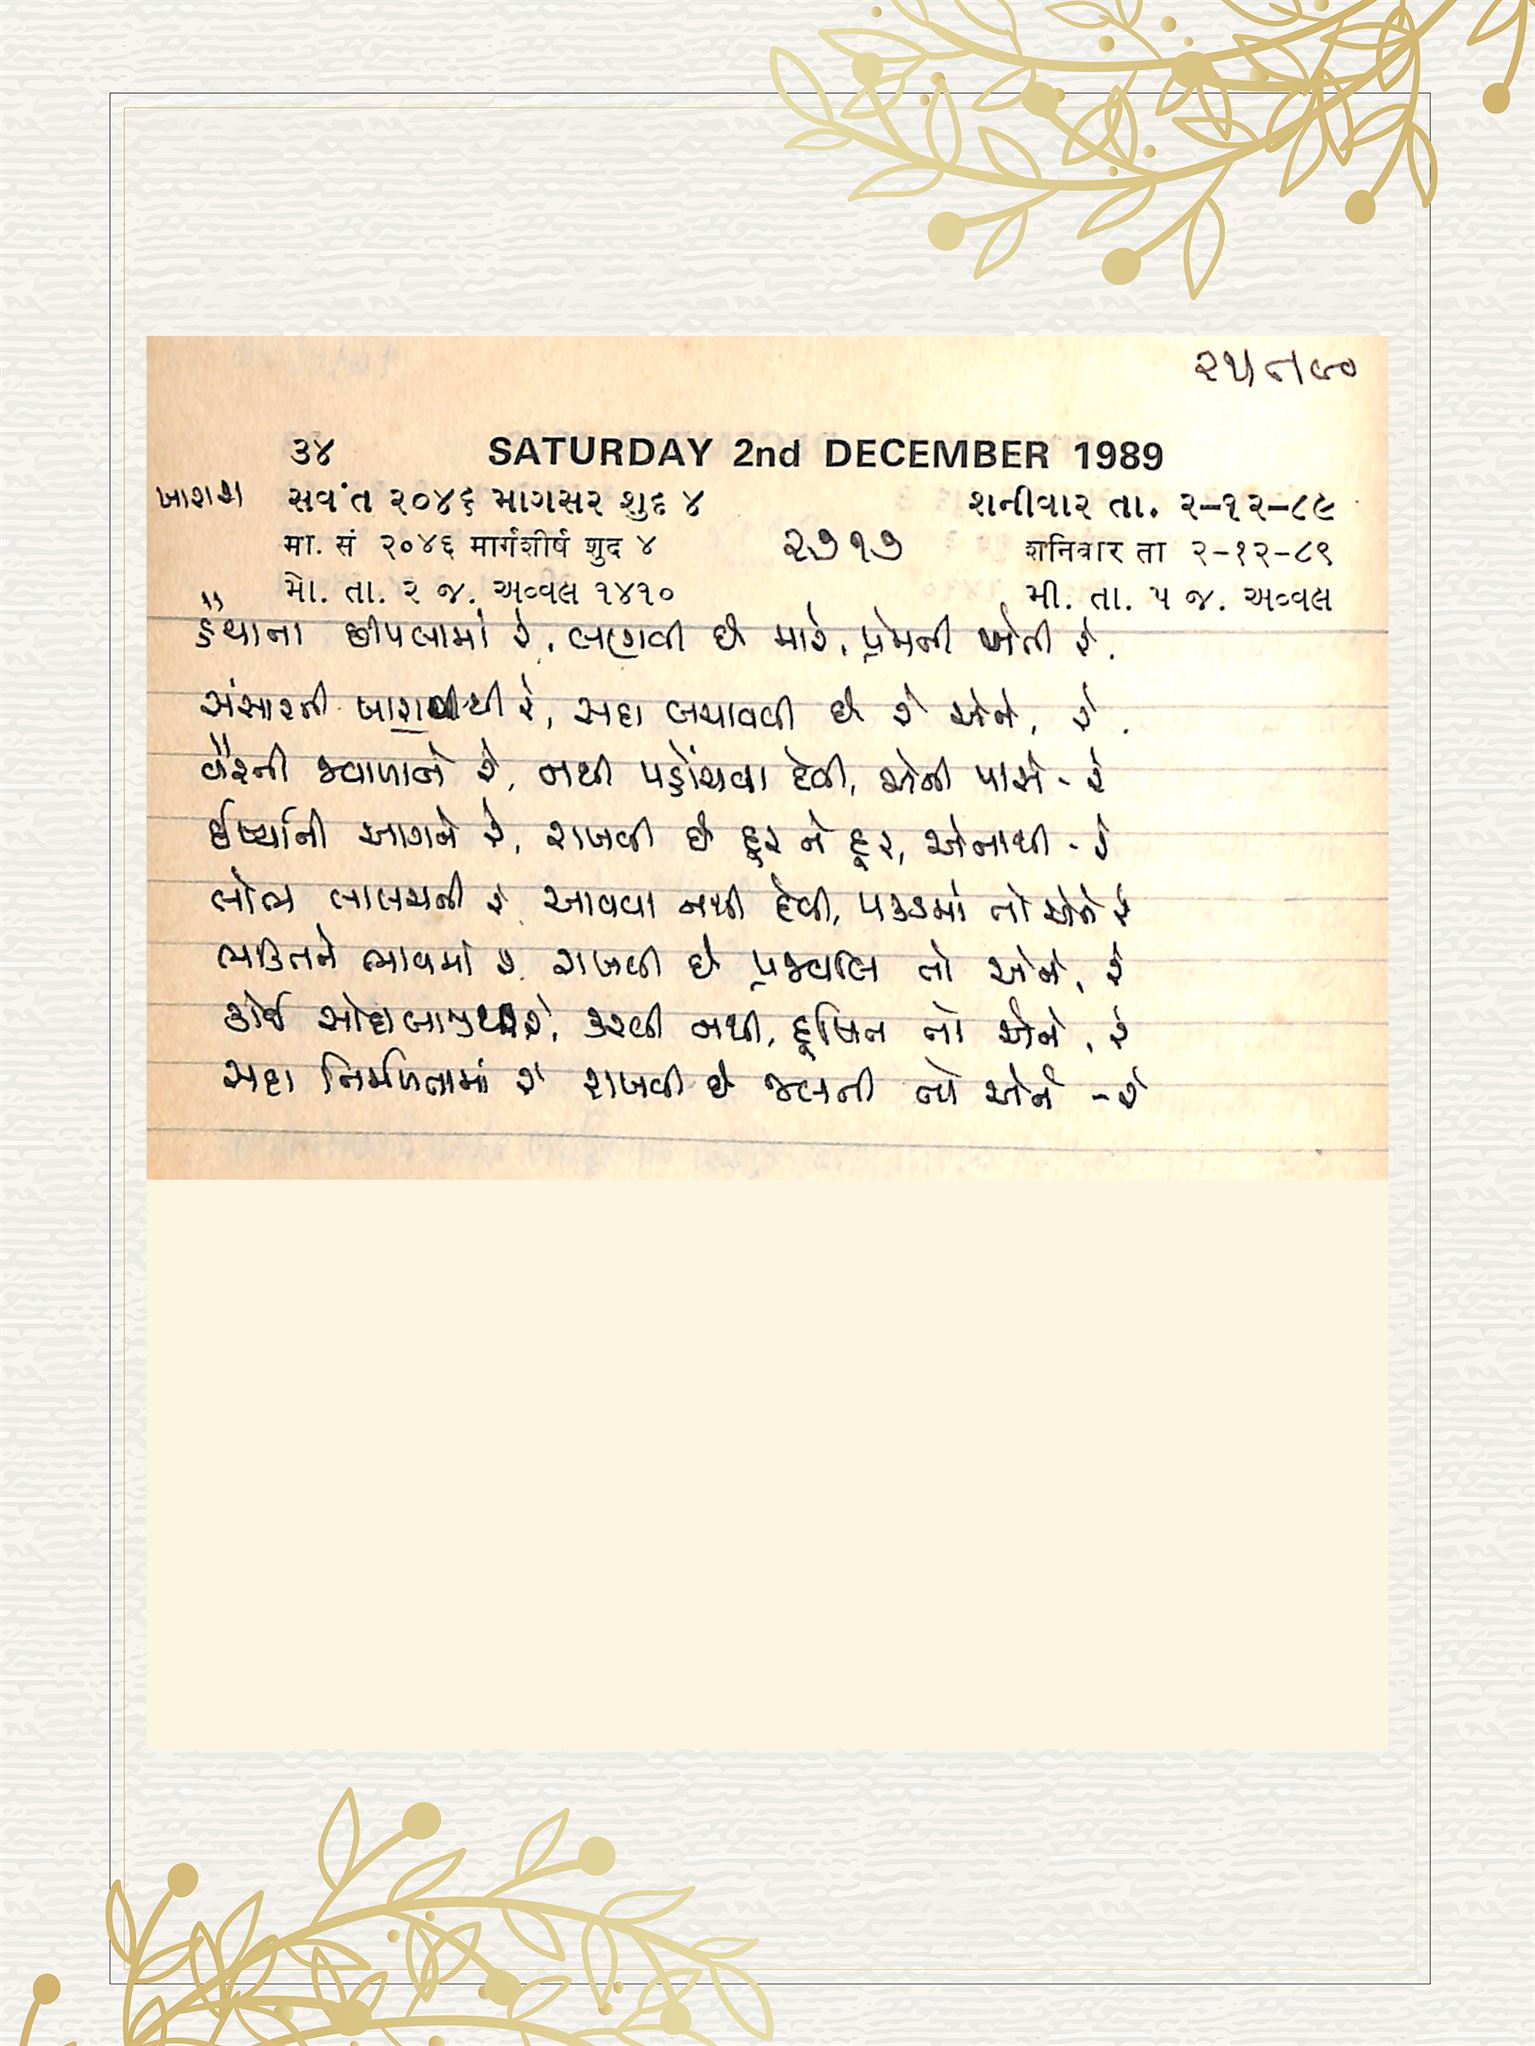 ૩૪ SATURDAY 2nd DECEMBER 1989
ખારાશ સવંત ૨૦૪૬ માગસર શુદ ૪ શનીવાર તા. ૨-૧૨-૮૯
मा. सं २०४६ मार्गशीर्ष शुद ४ ૨૭૧૭ शनिवार ता २-१२-८९
મો. તા. ૨ જ. અવ્વલ ૧૪૧૦ મી. તા. ૫ જ. અવ્વલ
હૈયાના છીપલામાં રે, છે મારે, પ્રેમની રે.
સંસારની રે, સદા બચાવવી છે રે એને, રે.
વૈરની જ્વાળાને રે, નથી પહોંચવા દેવી, એની પાસે - રે
ઈર્ષ્યાની આગને રે, રાખવી છે દૂર ને દૂર, એનાથી - રે
લોભ લાલચની રે આવવા નથી દેવી, પકડમાં તો એને રે
ભક્તિને ભાવમાં રે રાખવી છે પ્રજ્વલિ તો એને, રે
કોઈ રે, કરવી નથી, દૂષિત તો એને, રે
સદા નિર્મળતામાં રે રાખવી છે તો એને - રે